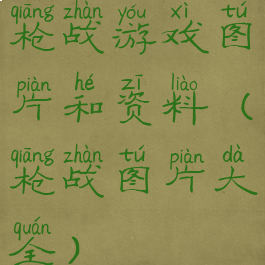 qiāng zhàn yóu xì tú
枪战游戏图
piàn hé zī liào
片和资料(
qiāng zhàn tú piàn dà
枪战图片大
quán
全)